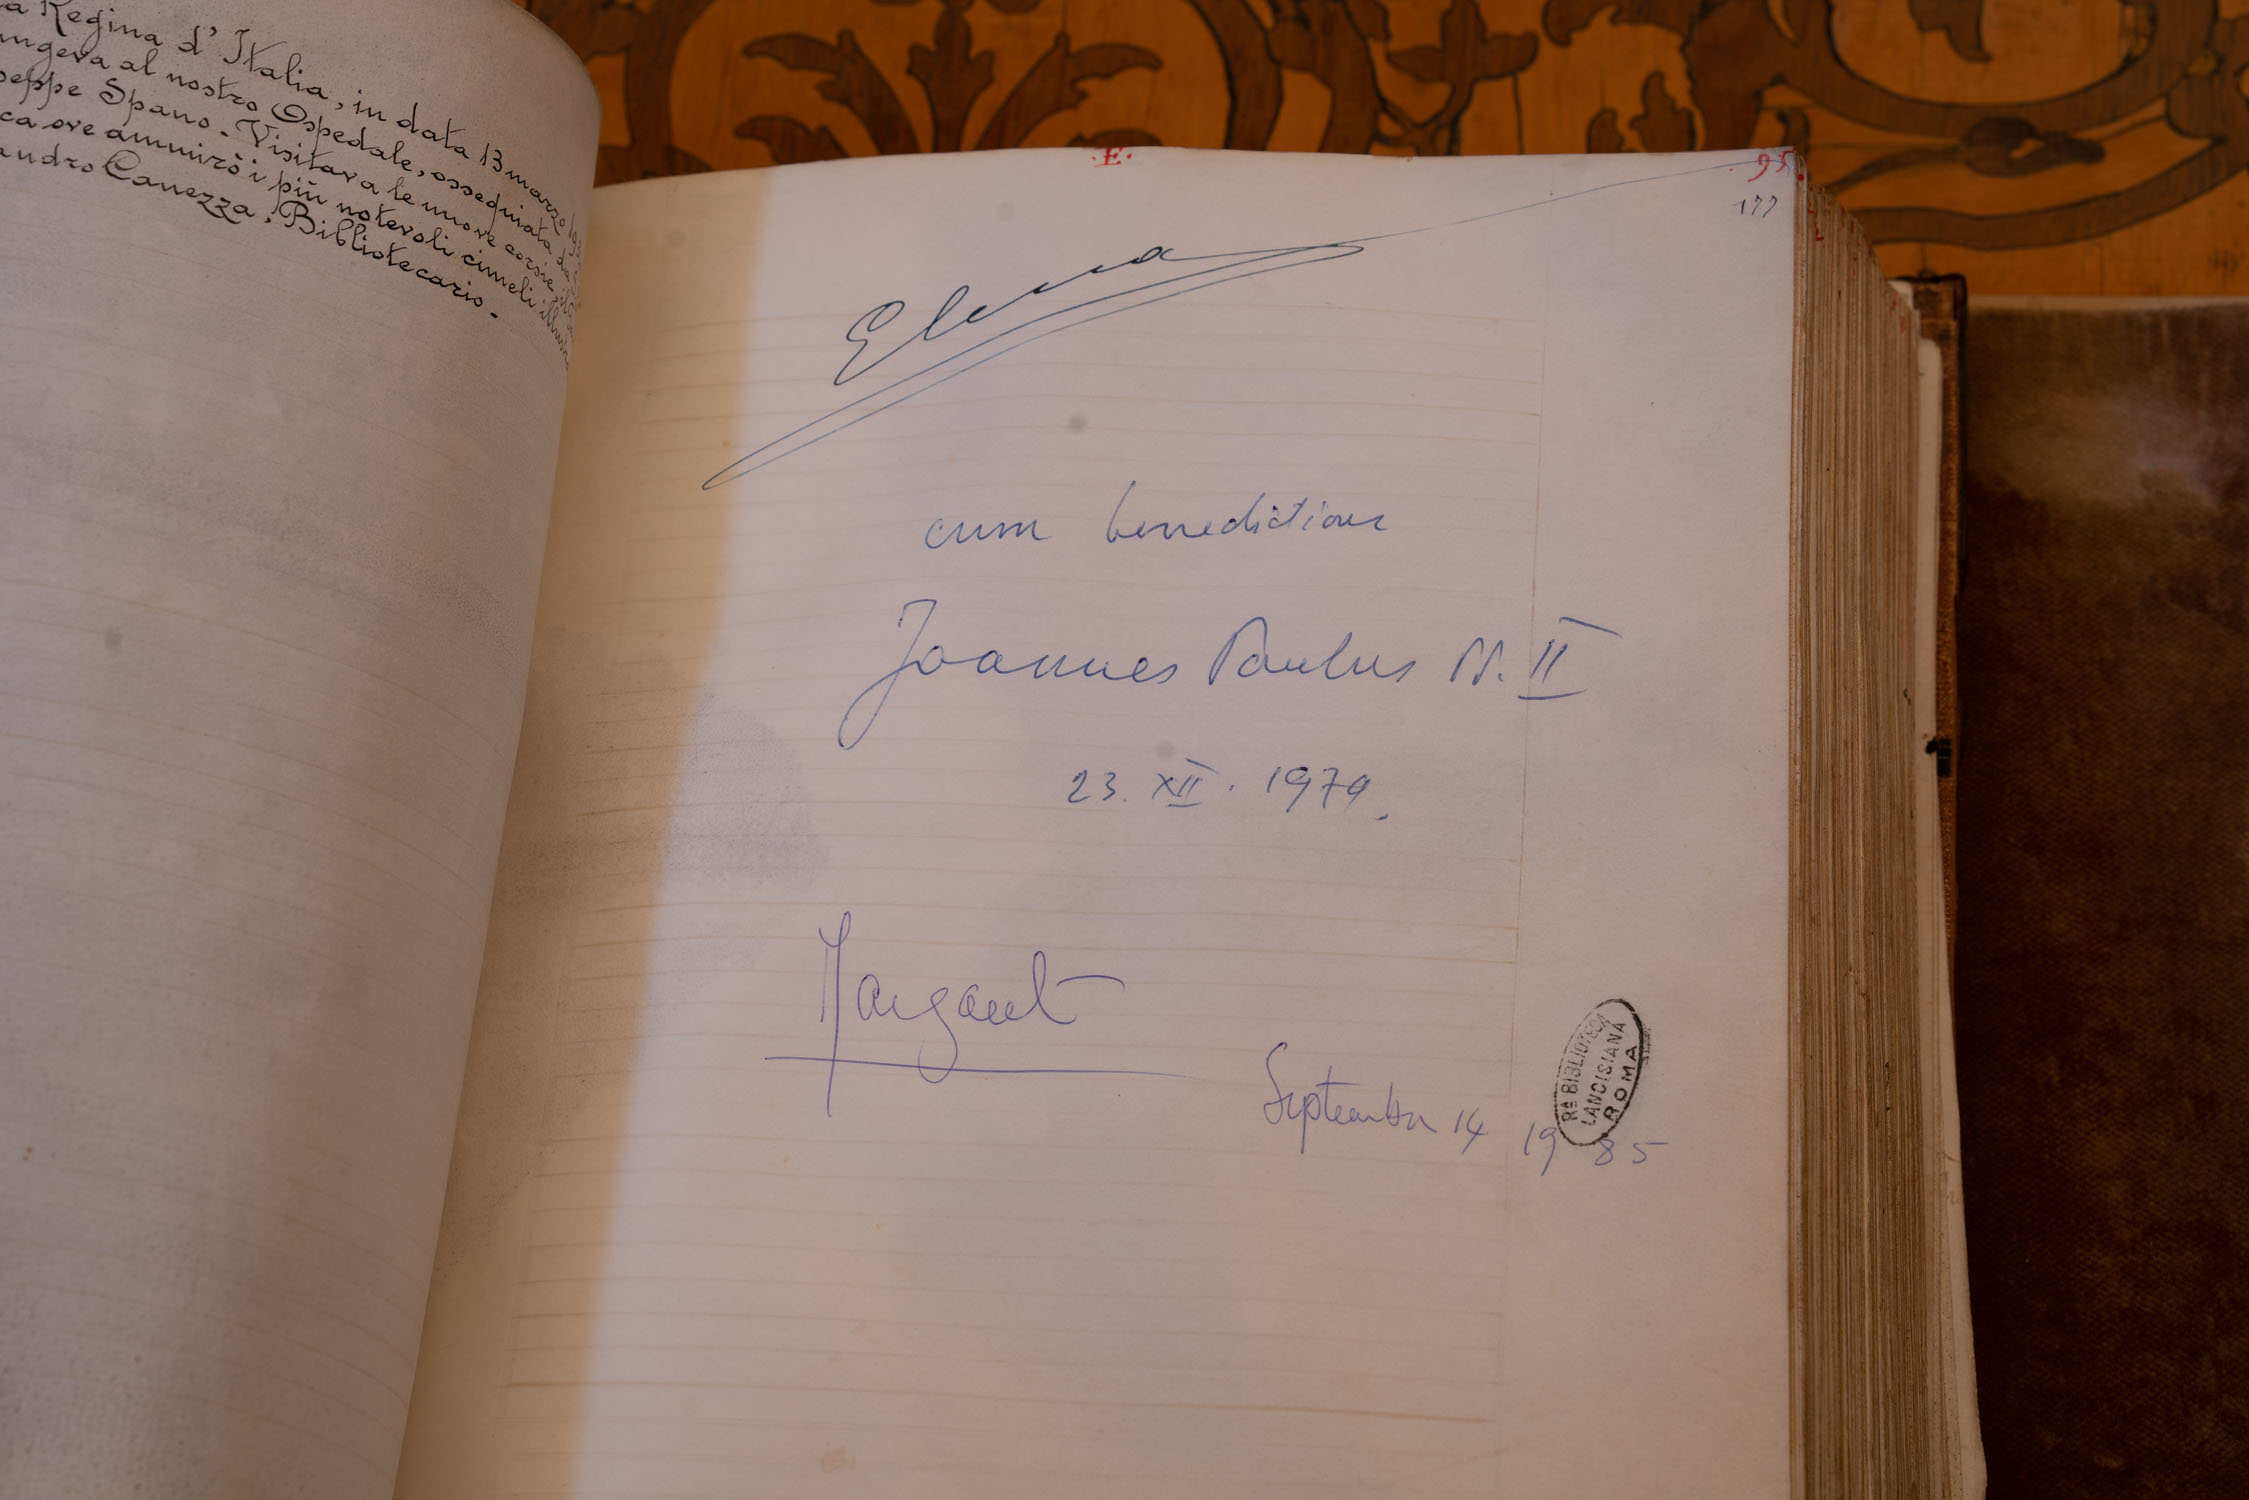 a Regina d' Italia, in data 13 marzo
ungeva al nostro Ospedale, ossequiata da
seppe Spano. Visitava le nuove corsie,
ca ove ammirò i più notevoli cimeli
andro Canezza, Bibliotecario.
.E.
95.
177
Elena
cum benedictione
Joannes Paulus PP. II
23. XII. 1979.
Margaret
September 14 1985
Rª BIBLIOTECA
LANCISIANA
ROMA